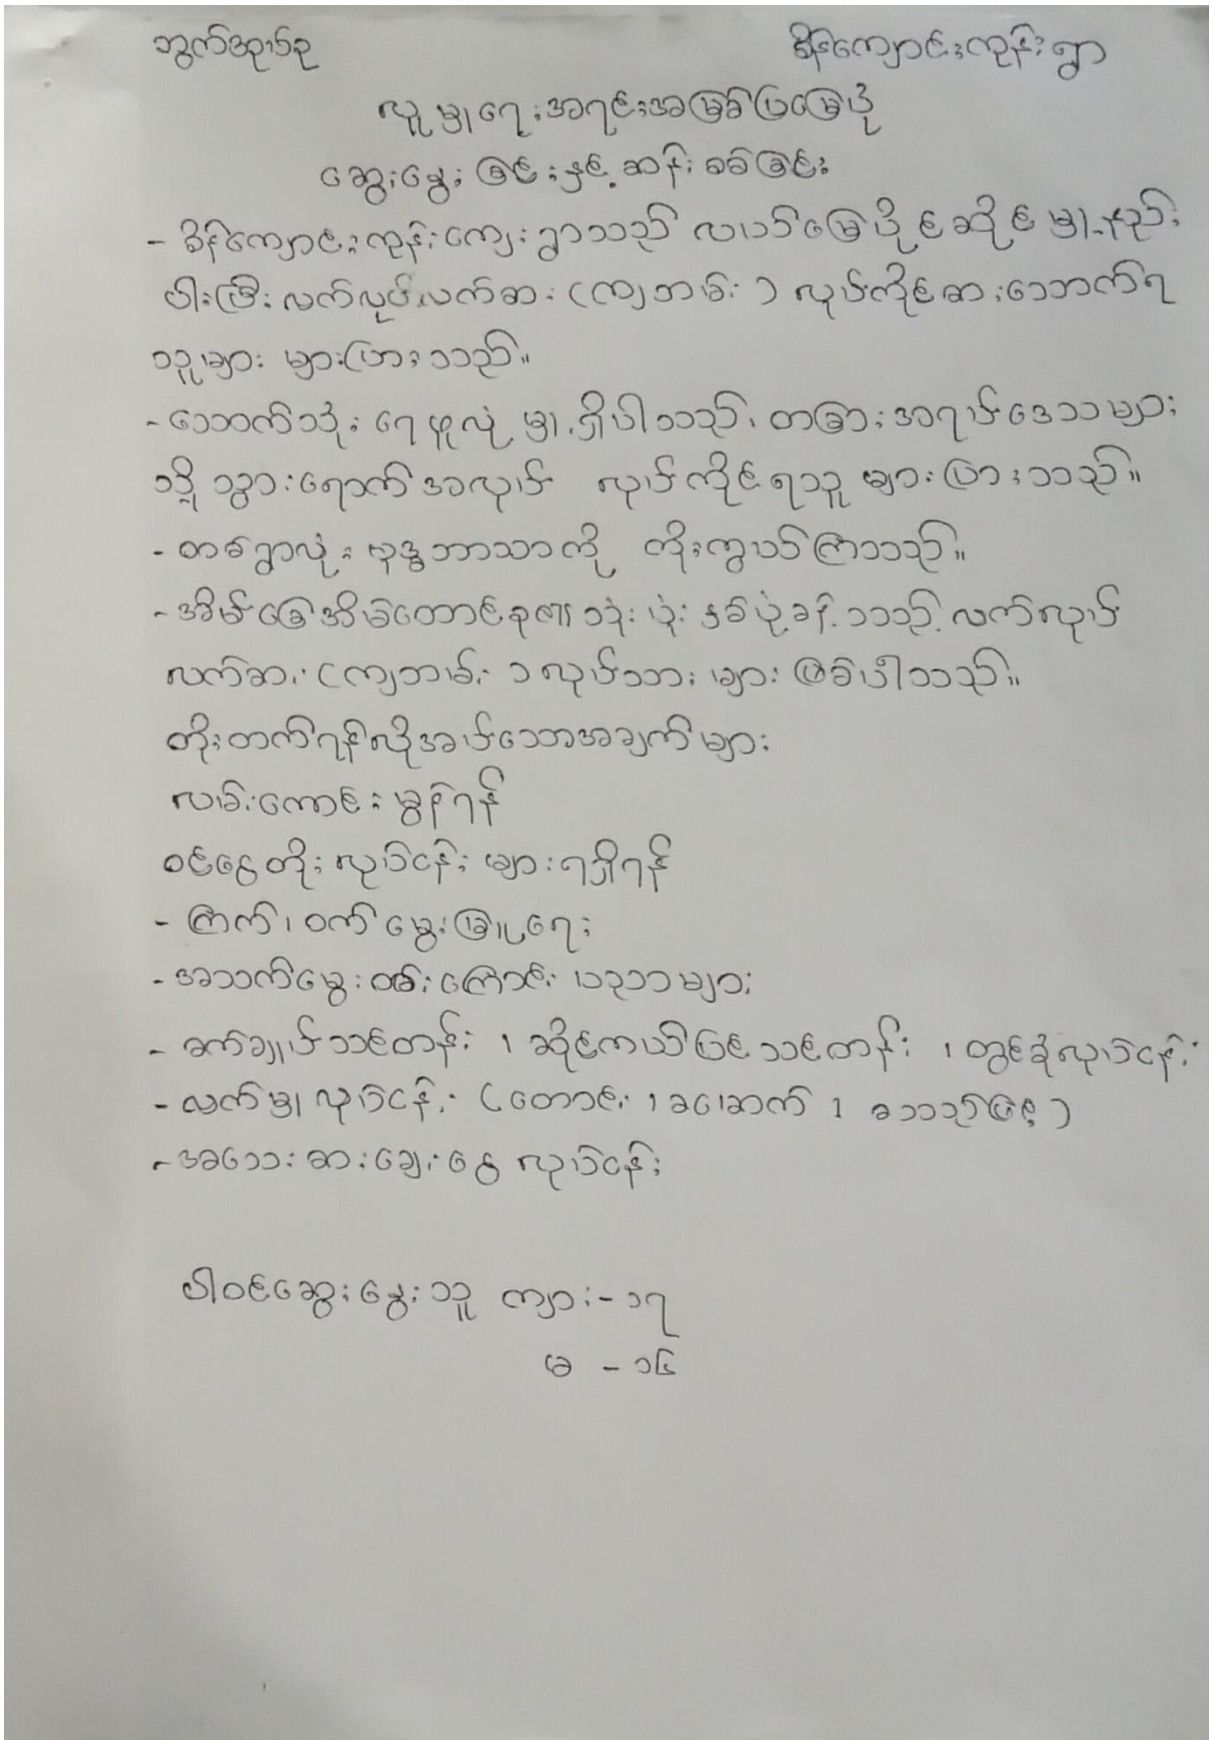 ဘွက်အုပ်စု စိန်ကျောင်းကုန်းရွာ
လူမှုရေးအရင်းအမြစ်ပြမြေပုံ
ဆွေးနွေးခြင်းနှင့်ဆန်းစစ်ခြင်း
- စိန်ကျောင်းကုန်းကျေးရွာသည် လယ်မြေပိုင်ဆိုင်မှုနည်း
ပါးပြီး လက်လုပ်လက်စား (ကျဘမ်း) လုပ်ကိုင်စားသောက်ရ
သူများ များပြားသည်။
- သောက်သုံးရေဖူလုံမှုရှိပါသည်၊ တခြားအရပ်ဒေသများ
သို့ သွားရောက်အလုပ် လုပ်ကိုင်ရသူ များပြားသည်။
- တစ်ရွာလုံး ဗုဒ္ဓဘာသာကို ကိုးကွယ်ကြသည်။
- အိမ်ခြေအိမ်ထောင်စု၏ သုံးပုံး နှစ်ပုံခန့်သည် လက်လုပ်
လက်စား (ကျဘမ်း) လုပ်သားများ ဖြစ်ပါသည်။
တိုးတက်ရန်လိုအပ်သောအချက်များ
လမ်းကောင်းမွန်ရန်
ဝင်ငွေတိုးလုပ်ငန်းများရရှိရန်
- ကြက်၊ ဝက်မွေးမြူရေး
- အသက်မွေးဝမ်းကြောင်း ပညာများ
- စက်ချုပ်သင်တန်း ၊ ဆိုင်ကယ်ပြင်သင်တန်း ၊ တွင်ခုံလုပ်ငန်း
- လက်မှုလုပ်ငန်း (တောင်း ၊ ခမောက် ၊ စသည်ဖြင့်)
- အသေးစားချေးငွေ လုပ်ငန်း
ပါဝင်ဆွေးနွေးသူ ကျား - ၁၇
မ - ၁၆